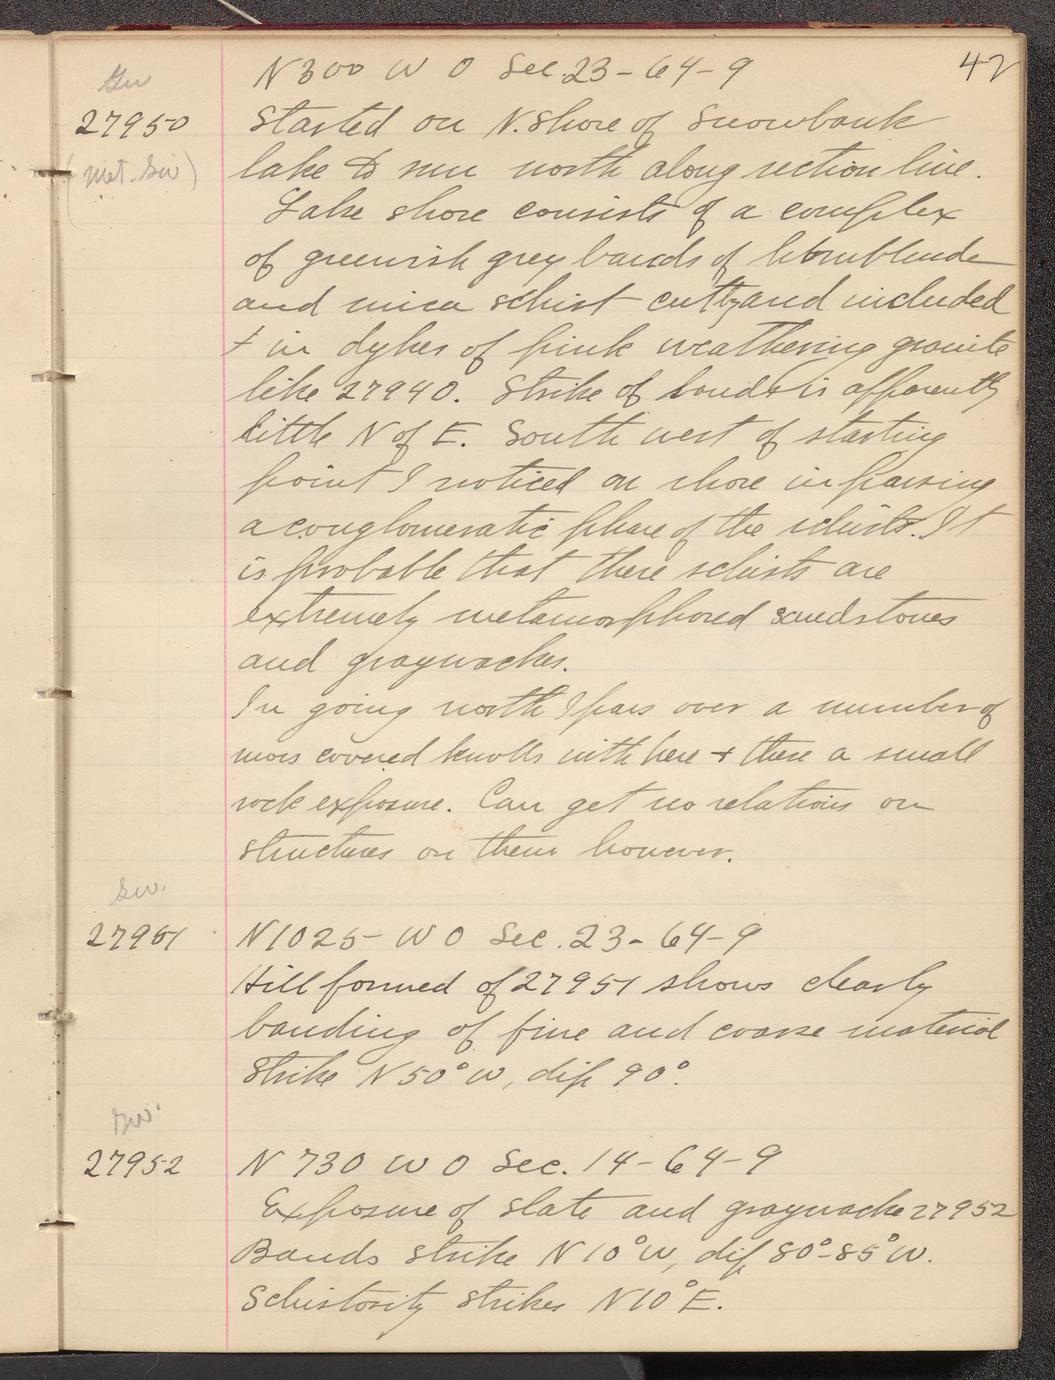 42
N 300 W 0 Sec. 23-64-9
Gw
27950
(met. Gw)
Started on N. Shore of Snowbank
lake & run north along section line.
Lake shore consists of a complex
of greenish grey bands of hornblende
and mica schist cut by and included
+ in dykes of pink weathering granite
like 27940. Strike of bands is apparently
little N of E. South west of starting
point I noticed on shore in passing
a conglomeratic phase of the schists. It
is probable that these schists are
extremely metamorphosed sandstones
and graywackes.
In going north I pass over a number of
moss covered knolls with here + there a small
rock exposure. Can get no relations or
structures on them however.
Gw.
27951
N 1025 W 0 Sec. 23-64-9
Hill formed of 27951 shows clearly
banding of fine and coarse material
Strike N 50° W, dip 90°.
Gw.
27952
N 730 W 0 Sec. 14-64-9
Exposure of slate and graywacke 27952
Bands strike N 10° W, dip 80°-85° W.
Schistosity strikes N 10° E.